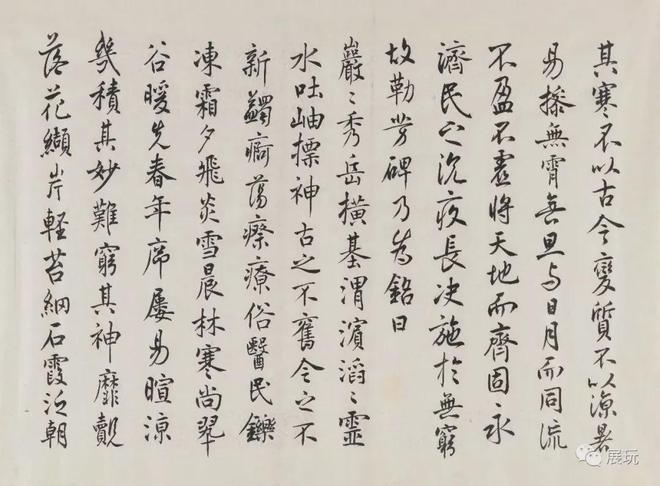 其寒不以古今變質不以涼暑
易操無霄無旦与日月而同流
不盈不虛將天地而齊固永
濟民之沉疫長决施於無窮
故勒芳碑乃為銘曰
巖〻秀岳橫基渭濱滔〻靈
水吐岫摽神古之不舊今之不
新蠲痾蕩瘵療俗醫民鑠
凍霜夕飛炎雪晨林寒尚翠
谷暖先春年席屢易暄涼
幾積其妙難窮其神靡覿
落花纈岸輕苔網石霞泛朝
展玩